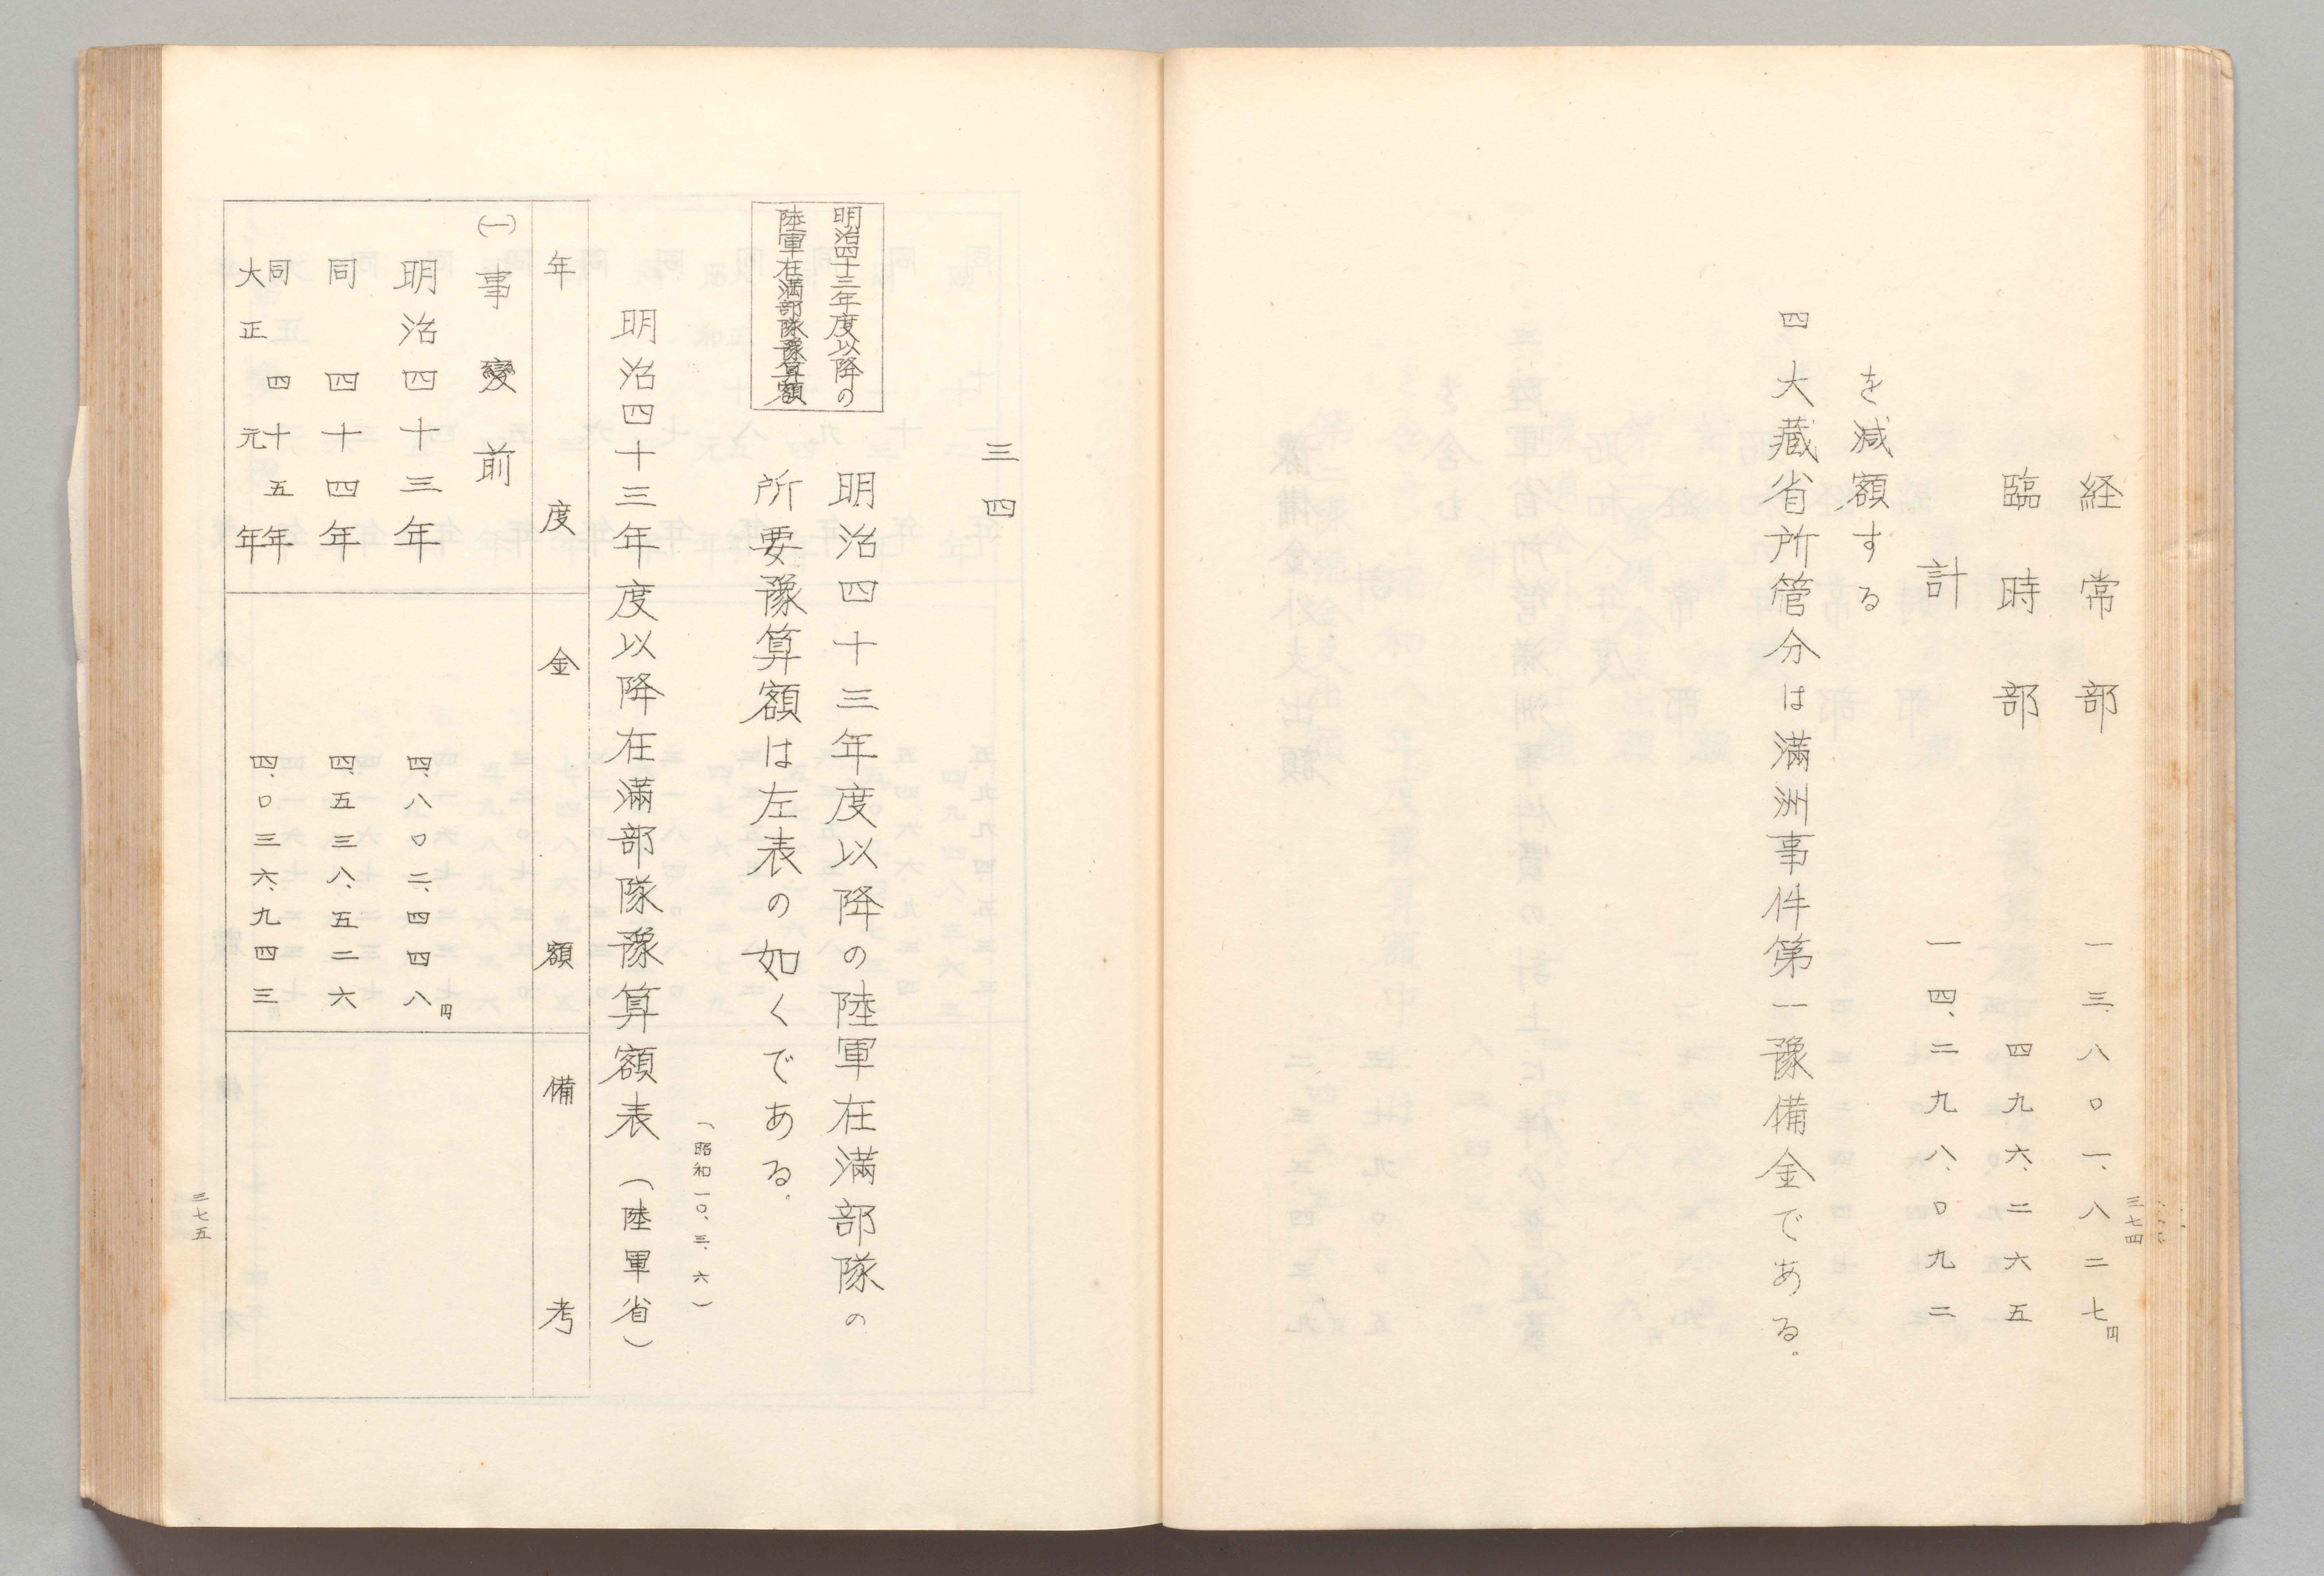 経常部 一三、八〇一、八二七円
臨時部 四九六、二六五
計 一四、二九八、〇九二
を減額する
四 大藏省所管分は満洲事件第一豫備金である。
三七四
三四
明治四十三年度以降の陸軍在満部隊の
所要豫算額は左表の如くである。
明治四十三年度以降の
陸軍在満部隊豫算額
(昭和一〇、三、六)
明治四十三年度以降在滿部隊豫算額表 (陸軍省)
年度 金額 備考
(一)事變前
明治四十三年 四、八〇二、四四八円
同 四十四年 四、五三八、五二六
同 四十五年
大正元年 四、〇三六、九四三
三七五